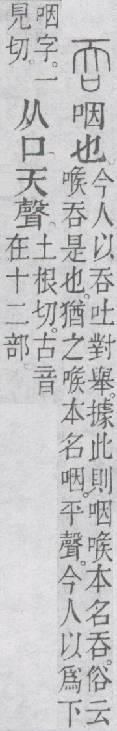 吞咽也。今人以吞吐對舉。據此則咽喉本名吞。俗云
喉吞是也。猶之喉本名咽。平聲。今人以爲下
咽字。一
見切。
从口天聲。土根切。古音
在十二部。